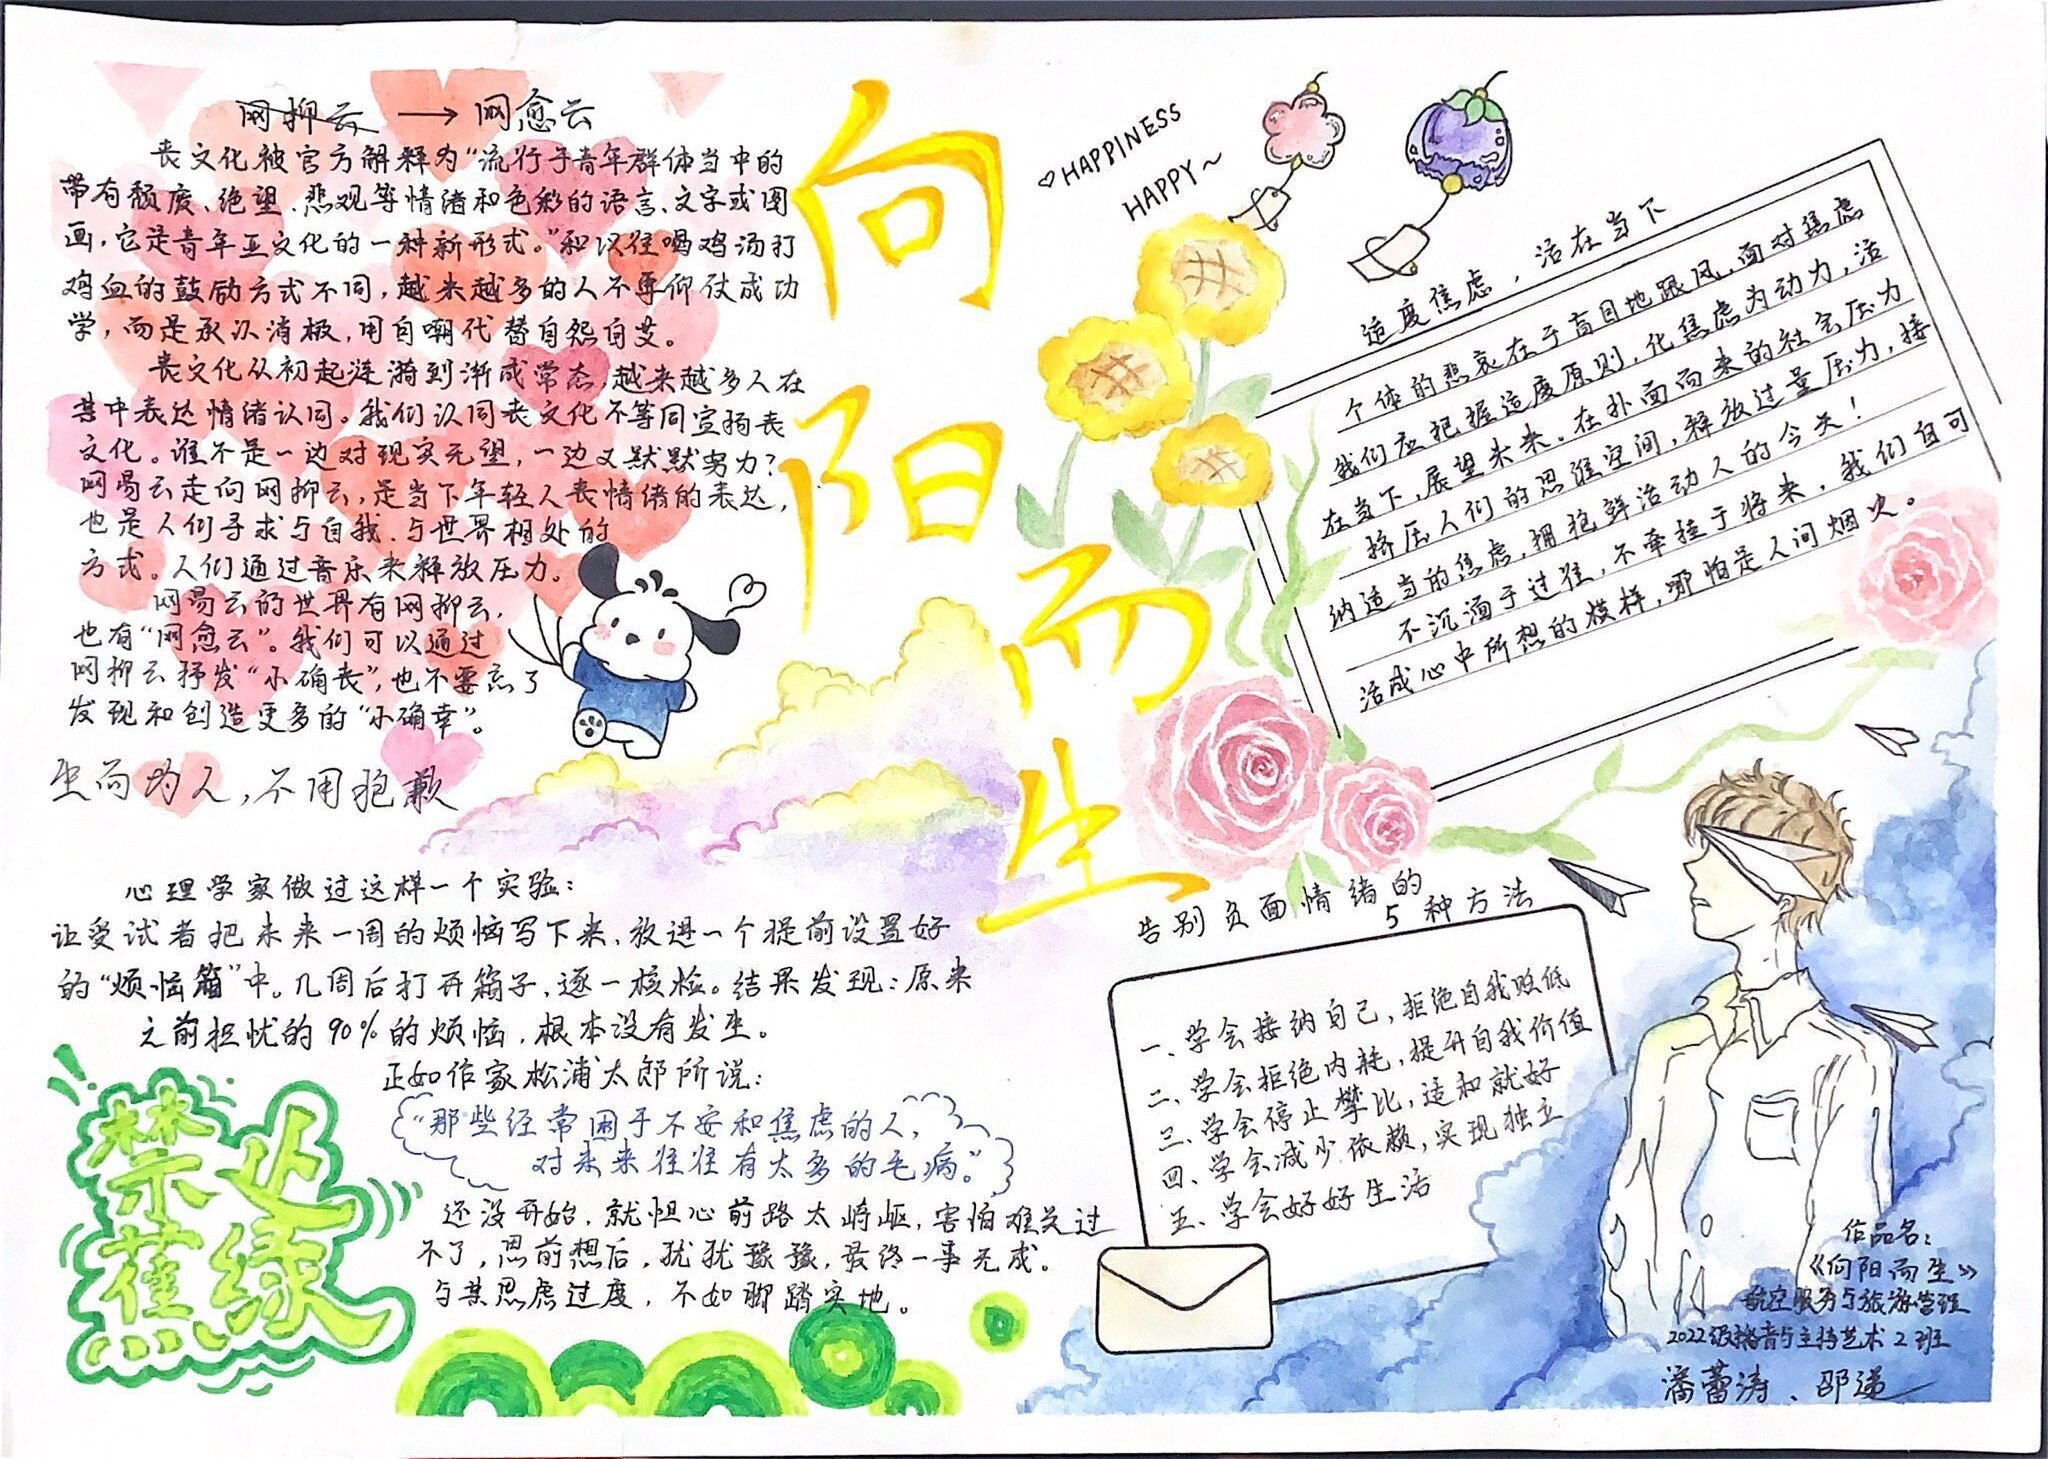 网抑云 → 网愈云
丧文化被官方解释为“流行于青年群体当中的
带有颓废、绝望、悲观等情绪和色彩的语言、文字或图
画，它是青年亚文化的一种新形式。”和以往喝鸡汤打
鸡血的鼓励方式不同，越来越多的人不再仰仗成功
学，而是承认消极，用自嘲代替自怨自艾。
丧文化从初起涟漪到渐成常态，越来越多人在
其中表达情绪认同。我们认同丧文化不等同宣扬丧
文化。谁不是一边对现实无望，一边又默默努力？
网易云走向网抑云，是当下年轻人丧情绪的表达，
也是人们寻求与自我、与世界相处的
方式。人们通过音乐来释放压力。
网易云的世界有网抑云，
也有“网愈云”。我们可以通过
网抑云抒发“小确丧”，也不要忘了
发现和创造更多的“小确幸”。
生而为人，不用抱歉
向阳而生
♡HAPPINESS
HAPPY~
适度焦虑，活在当下
个体的悲哀在于盲目地跟风，面对焦虑
我们应把握适度原则，化焦虑为动力，活
在当下，展望未来。在扑面而来的社会压力
挤压人们的思维空间，释放过量压力，接
纳适当的焦虑，拥抱鲜活动人的今天！
不沉湎于过往，不牵挂于将来，我们自可
活成心中所想的模样，哪怕是人间烟火。
心理学家做过这样一个实验：
让受试者把未来一周的烦恼写下来，放进一个提前设置好
的“烦恼箱”中。几周后打开箱子，逐一核检。结果发现：原来
之前担忧的90%的烦恼，根本没有发生。
正如作家松浦太郎所说：
“那些经常困于不安和焦虑的人，
对未来往往有太多的毛病。”
还没开始，就担心前路太崎岖，害怕难关过
不了，思前想后，犹犹豫豫，最终一事无成。
与其思虑过度，不如脚踏实地。
禁止
蕉绿
告别负面情绪的
5种方法
一、学会接纳自己，拒绝自我贬低
二、学会拒绝内耗，提升自我价值
三、学会停止攀比，适和就好
四、学会减少依赖，实现独立
五、学会好好生活
作品名：
《向阳而生》
航空服务与旅游管理
2022级播音与主持艺术2班
潘蕾涛、邵递